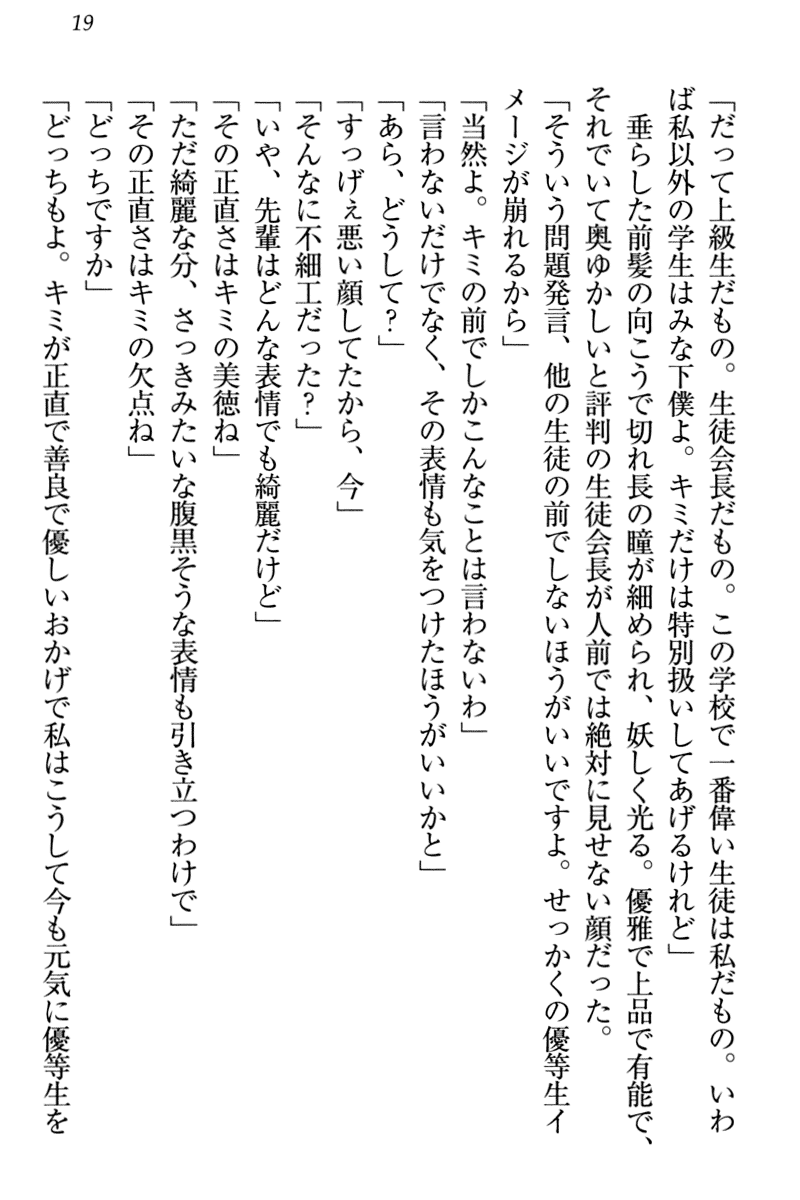 19
「だって上級生だもの。生徒会長だもの。この学校で一番偉い生徒は私だもの。いわ
ば私以外の学生はみな下僕よ。キミだけは特別扱いしてあげるけれど」
　垂らした前髪の向こうで切れ長の瞳が細められ、妖しく光る。優雅で上品で有能で、
それでいて奥ゆかしいと評判の生徒会長が人前では絶対に見せない顔だった。
「そういう問題発言、他の生徒の前でしないほうがいいですよ。せっかくの優等生イ
メージが崩れるから」
「当然よ。キミの前でしかこんなことは言わないわ」
「言わないだけでなく、その表情も気をつけたほうがいいかと」
「あら、どうして？」
「すっげぇ悪い顔してたから、今」
「そんなに不細工だった？」
「いや、先輩はどんな表情でも綺麗だけど」
「その正直さはキミの美徳ね」
「ただ綺麗な分、さっきみたいな腹黒そうな表情も引き立つわけで」
「その正直さはキミの欠点ね」
「どっちですか」
「どっちもよ。キミが正直で善良で優しいおかげで私はこうして今も元気に優等生を